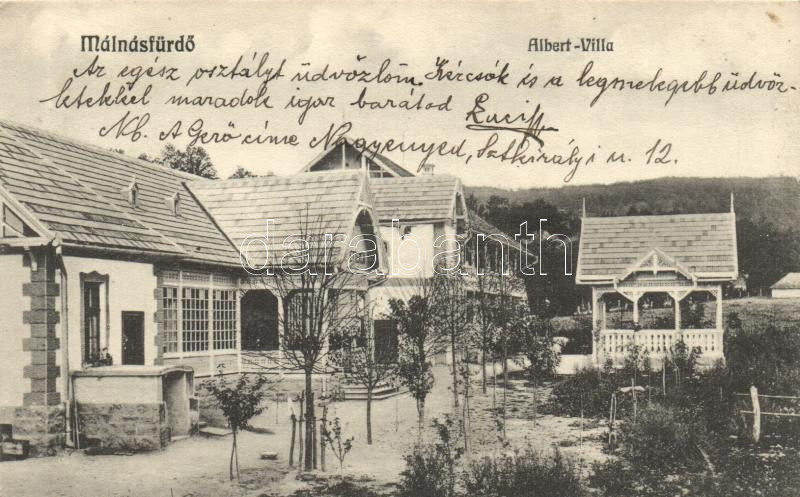 Málnásfürdő
Albert-Villa
Az egész osztályt üdvözlöm. Kércsók is a legmelegebb üdvöz-
letekkel maradok igaz barátod
NB. A Gerő címe Nagyenyed, Sztkirályi u. 12.
darabanth